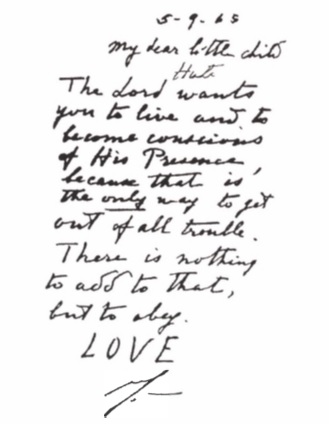 5-9-65
My dear little child
Huta
The Lord wants
you to live and to
become conscious
of His Presence,
because that is
the only way to get
out of all trouble.
There is nothing
to add to that,
but to obey.
LOVE